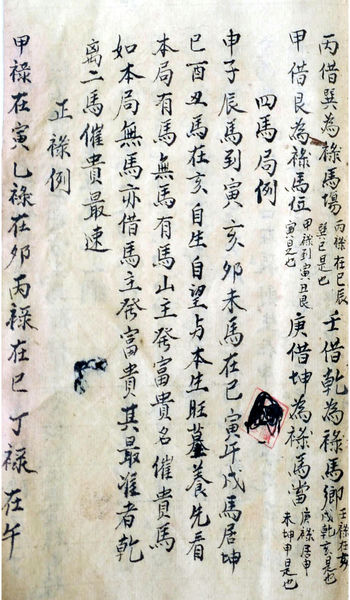 丙借巽為祿馬場 丙祿在巳辰巽巳是也 壬借乾為祿馬鄉 壬祿在亥戌乾亥是也
甲借艮為祿馬位 甲祿到寅丑艮寅是也 庚借坤為祿馬當 庚祿居申未坤申是也
四馬局例
申子辰馬到寅亥卯未馬在巳寅午戌馬居坤
巳酉丑馬在亥自生自望与本生旺墓養先看
本局有馬無馬有馬山主發富貴名催貴馬
如本局無馬亦借馬主發富貴其最准者乾
离二馬催貴最速
正祿例
甲祿在寅乙祿在卯丙祿在巳丁祿在午